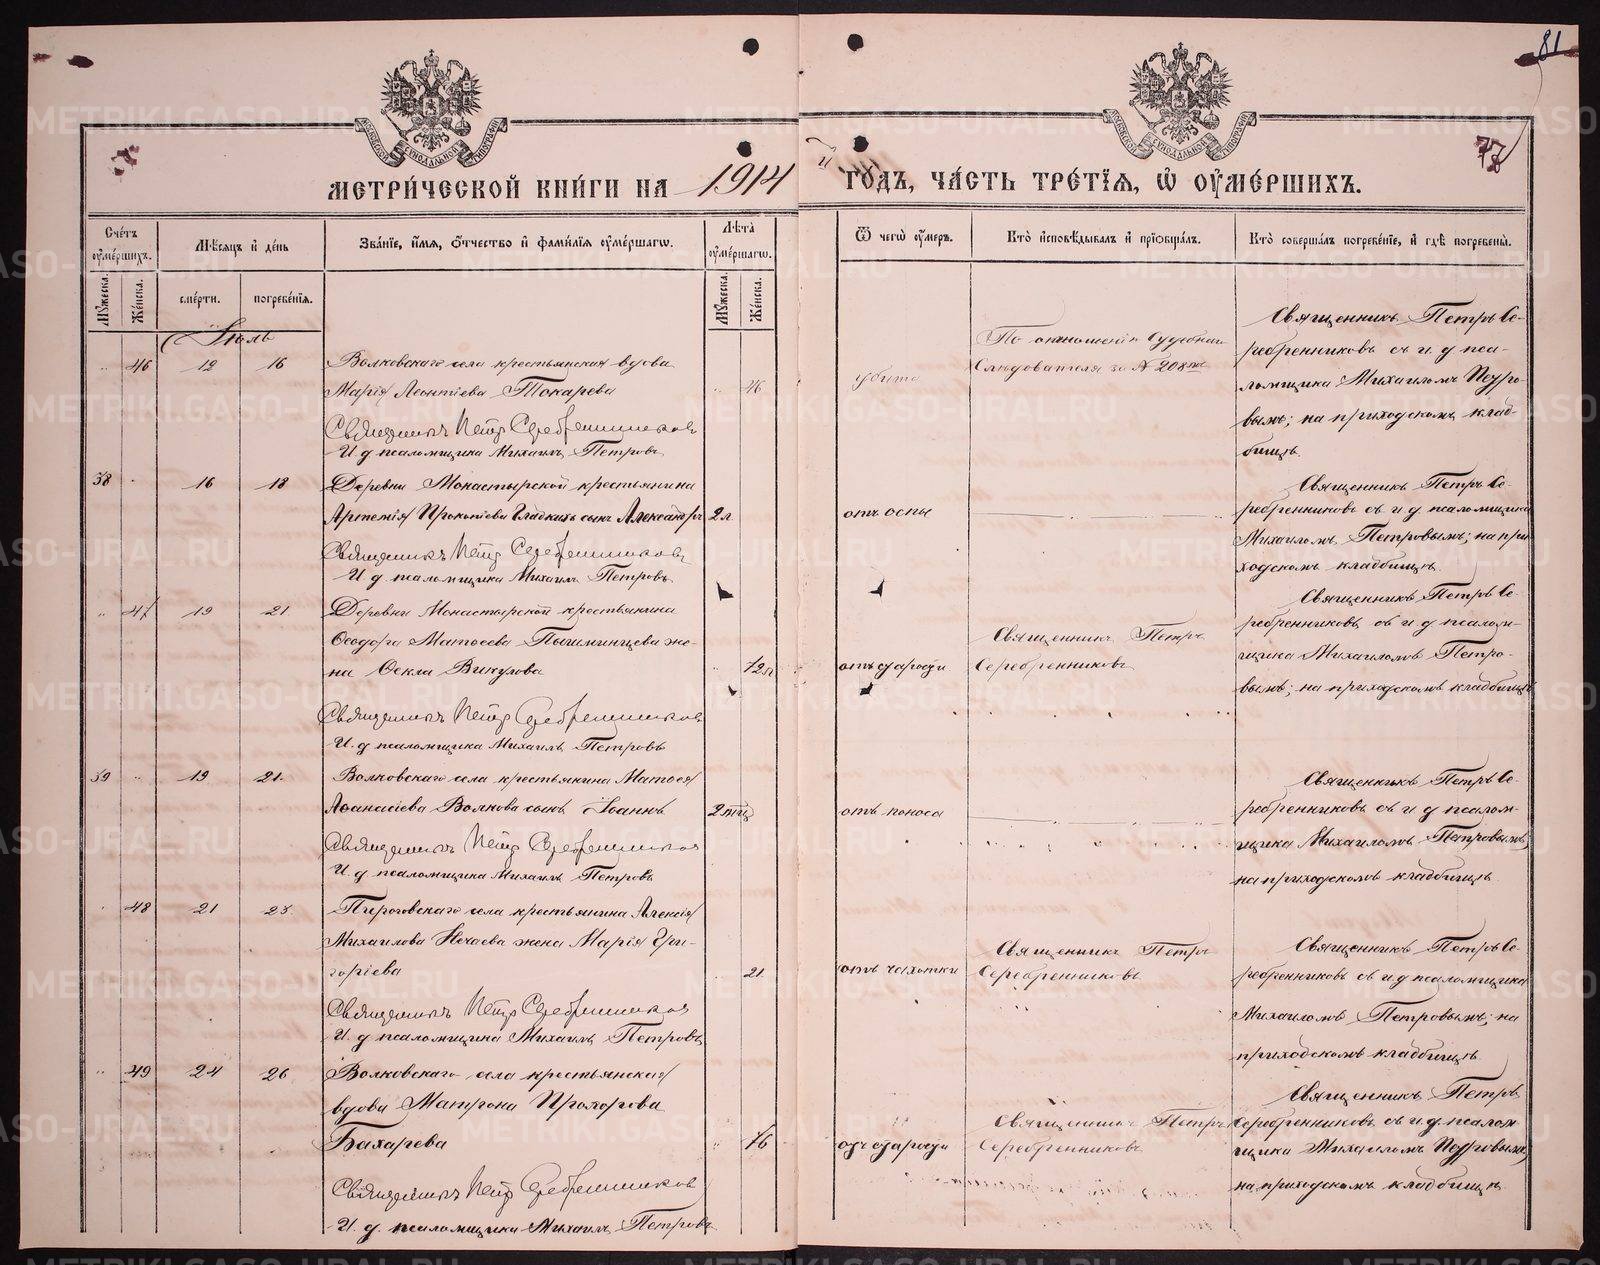 81
77
78
МОСКОВСКОЙ СѴНОДАЛЬНОЙ ТИПОГРАФІИ
МОСКОВСКОЙ СѴНОДАЛЬНОЙ ТИПОГРАФІИ
МЕТРИ́ЧЕСКОЙ КНИ́ГИ НА 1914 й ГО́ДЪ, ЧА́СТЬ ТРЕ́ТІѦ, Ѡ҆ ОУ҆МЕ́РШИХЪ.
Сче́тъ оу҆ме́ршихъ.
Мꙋ́жеска.
Же́нска.
Мѣ́сѧцъ и҆ де́нь
сме́рти.
погребе́нїѧ.
Зва́нїе, и҆́мѧ, ѻ҆́тчество и҆ фами́лїѧ оу҆ме́ршагѡ.
Лѣ́та оу҆ме́ршагѡ.
Мꙋ́жеска.
Же́нска.
Ѿ чегѡ̀ оу҆́меръ.
Кто̀ и҆сповѣ́дывалъ и҆ прїѡбща́лъ.
Кто̀ соверша́лъ погребе́нїе, и҆ гдѣ̀ погребены̀.
Іюль
46 12 16 Волковскаго села крестьянская вдова
Марія Леонтіева Токарева 46
Священникъ Петръ Серебренниковъ
И. д. псаломщика Михаилъ Петровъ
убита
По отношенію Судебнаго
Слѣдователя за № 208
Священникъ Петръ Се-
ребренниковъ съ и. д. пса-
ломщика Михаиломъ Петро-
вымъ; на приходскомъ клад-
бищѣ.
38 16 18 Деревни Монастырской крестьянина
Артемія Прокопіева Гладкихъ сынъ Александръ 2 л
Священникъ Петръ Серебренниковъ
И. д. псаломщика Михаилъ Петровъ
отъ оспы
Священникъ Петръ Се-
ребренниковъ съ и. д. псаломщика
Михаиломъ Петровымъ; на при-
ходскомъ кладбищѣ.
47 19 21 Деревни Монастырской крестьянина
Ѳеодора Матѳеева Пышминцева же-
на Ѳекла Викулова 72 л
Священникъ Петръ Серебренниковъ
И. д. псаломщика Михаилъ Петровъ
отъ старости
Священникъ Петръ
Серебренниковъ
Священникъ Петръ Се-
ребренниковъ съ и. д. псалом-
щика Михаиломъ Петро-
вымъ; на приходскомъ кладбищѣ
39 19 21 Волковскаго села крестьянина Матѳея
Аѳанасіева Волкова сынъ Іоаннъ 2 мѣц
Священникъ Петръ Серебренниковъ
И. д. псаломщика Михаилъ Петровъ
отъ поноса
Священникъ Петръ Се-
ребренниковъ съ и. д. псалом-
щика Михаиломъ Петровымъ;
на приходскомъ кладбищѣ.
48 21 23 Пироговскаго села крестьянина Алексія
Михаилова Нечаева жена Марія Гри-
горіева 21
Священникъ Петръ Серебренниковъ
И. д. псаломщика Михаилъ Петровъ
отъ чахотки
Священникъ Петръ
Серебренниковъ
Священникъ Петръ Се-
ребренниковъ съ и. д. псаломщика
Михаиломъ Петровымъ; на
приходскомъ кладбищѣ.
49 24 26 Волковскаго села крестьянская
вдова Матрона Прохорова
Бахарева 76
Священникъ Петръ Серебренниковъ
И. д. псаломщика Михаилъ Петровъ
отъ старости
Священникъ Петръ
Серебренниковъ
Священникъ Петръ
Серебренниковъ съ и. д. псалом-
щика Михаиломъ Петровымъ;
на приходскомъ кладбищѣ.
METRIKI.GASO-URAL.RU